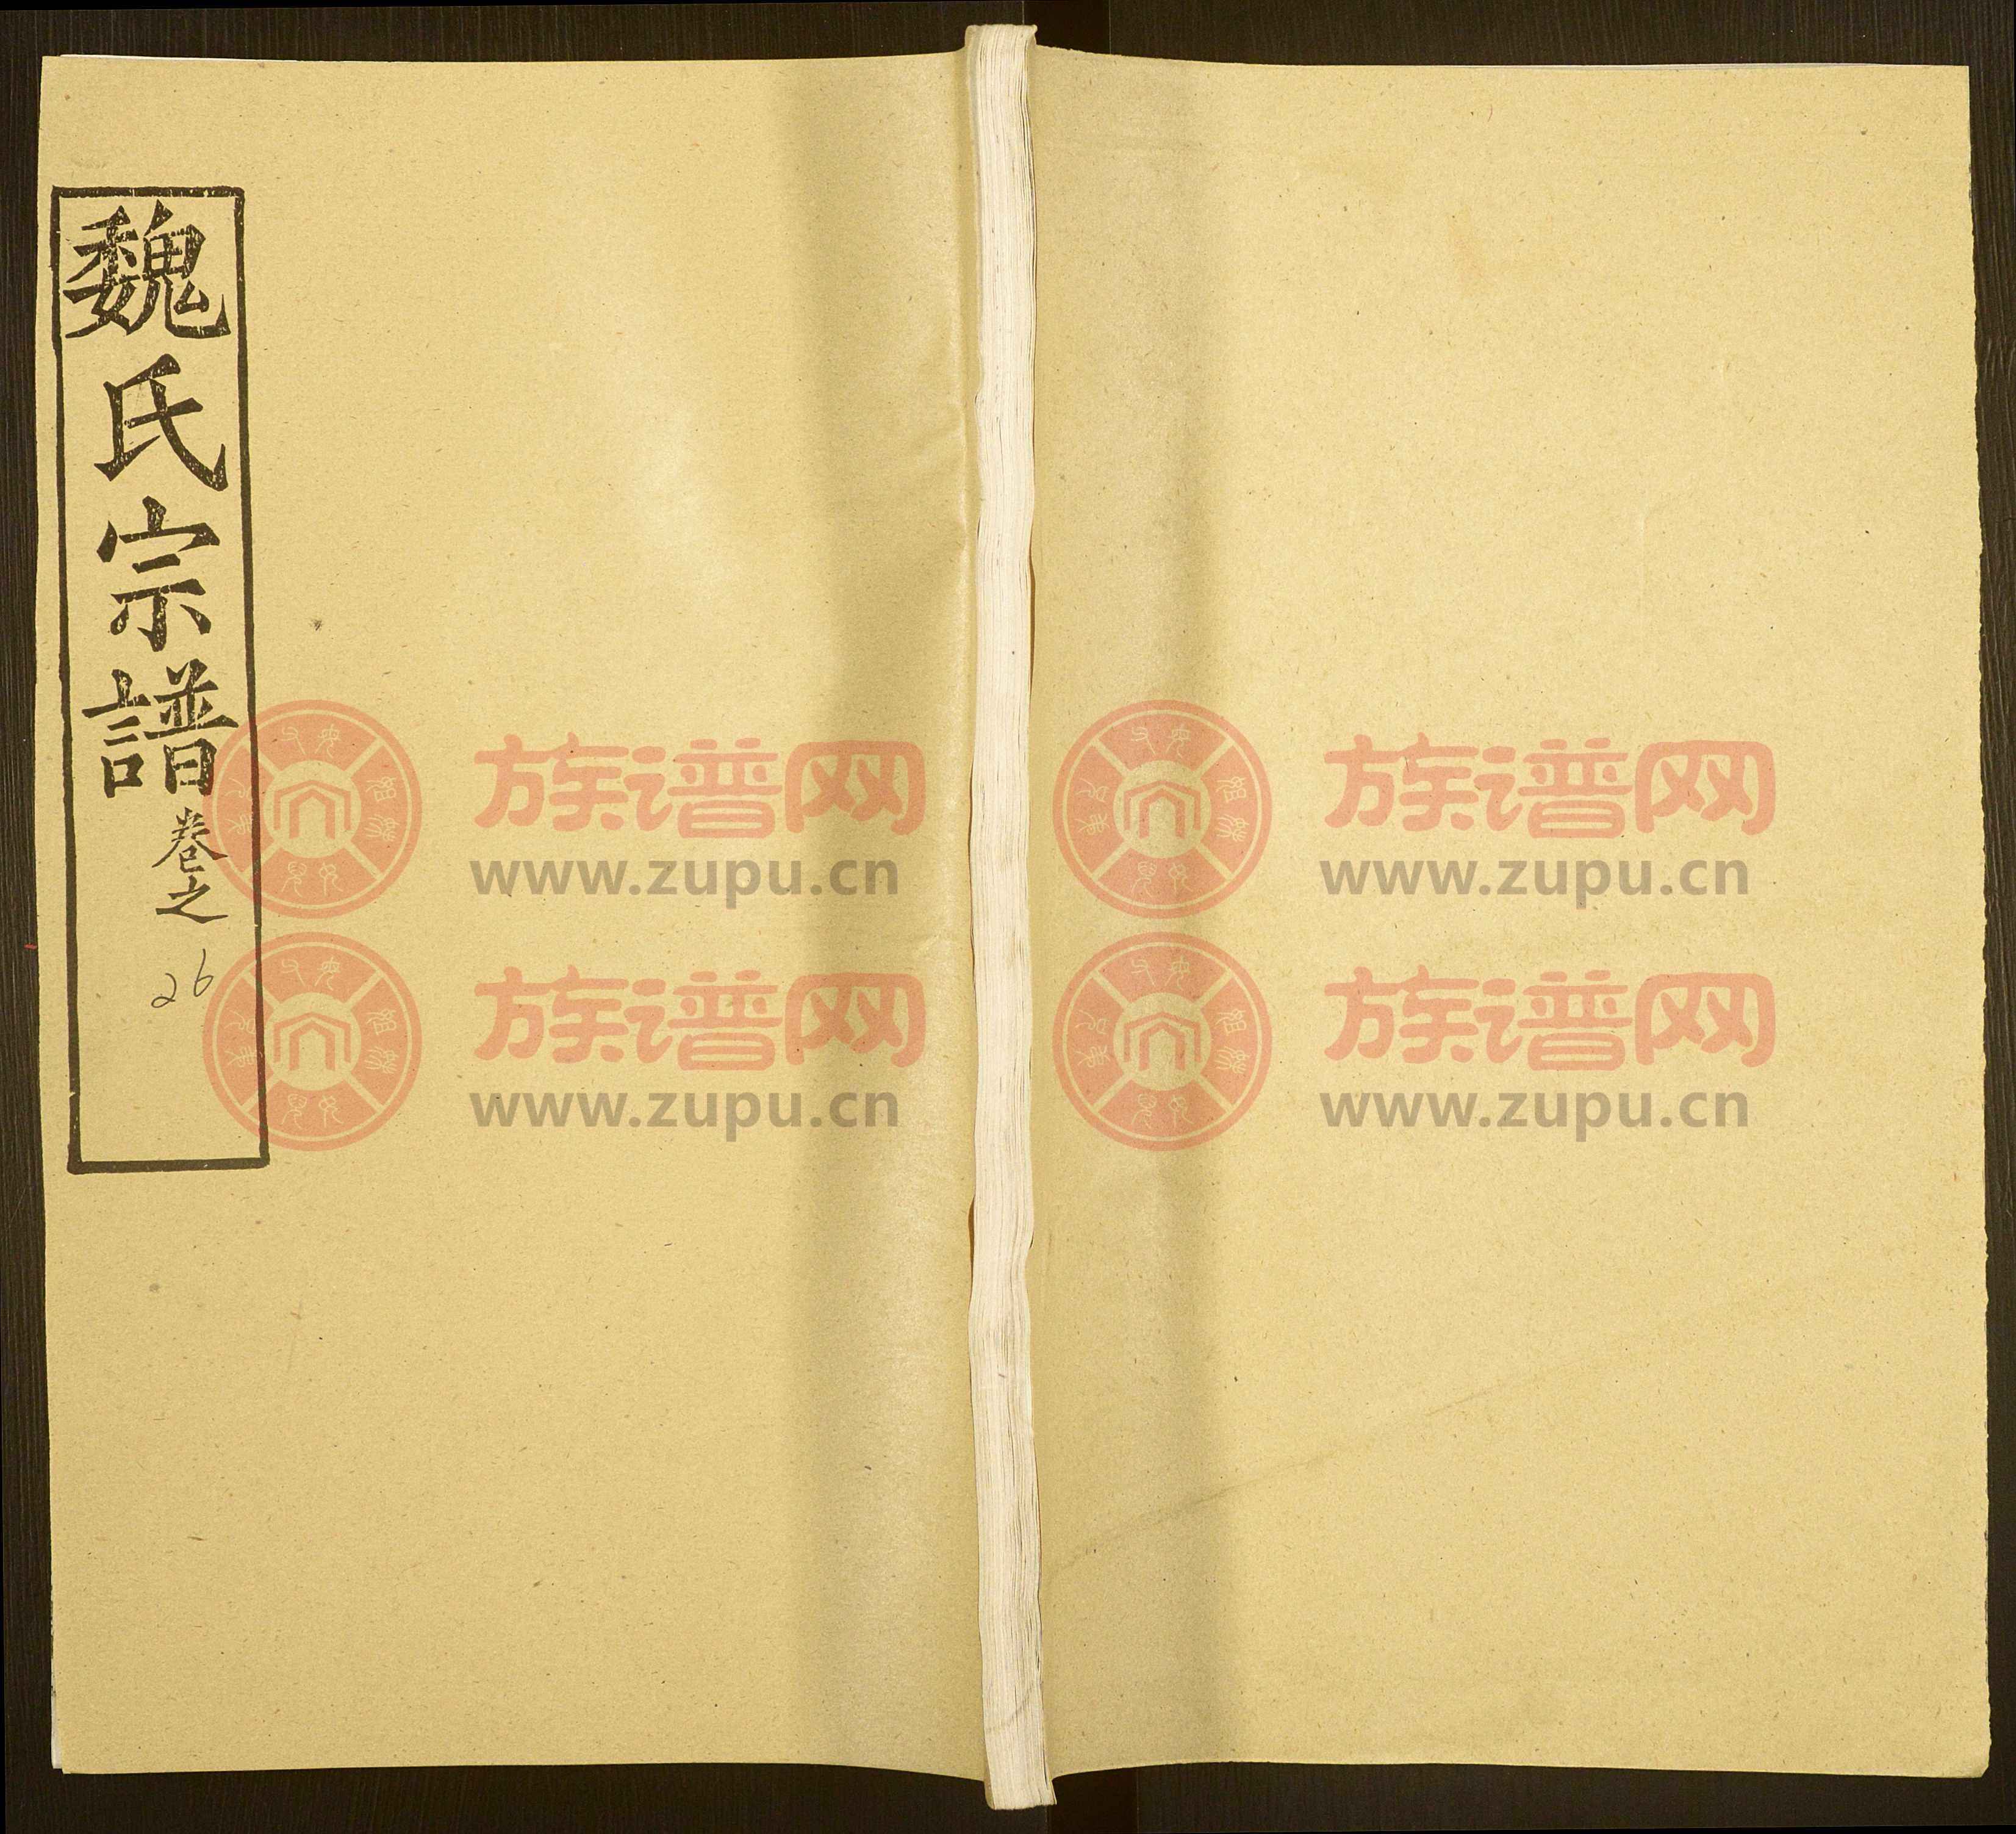 魏氏宗譜卷之
26
族谱网
www.zupu.cn
族谱网
www.zupu.cn
族谱网
www.zupu.cn
族谱网
www.zupu.cn